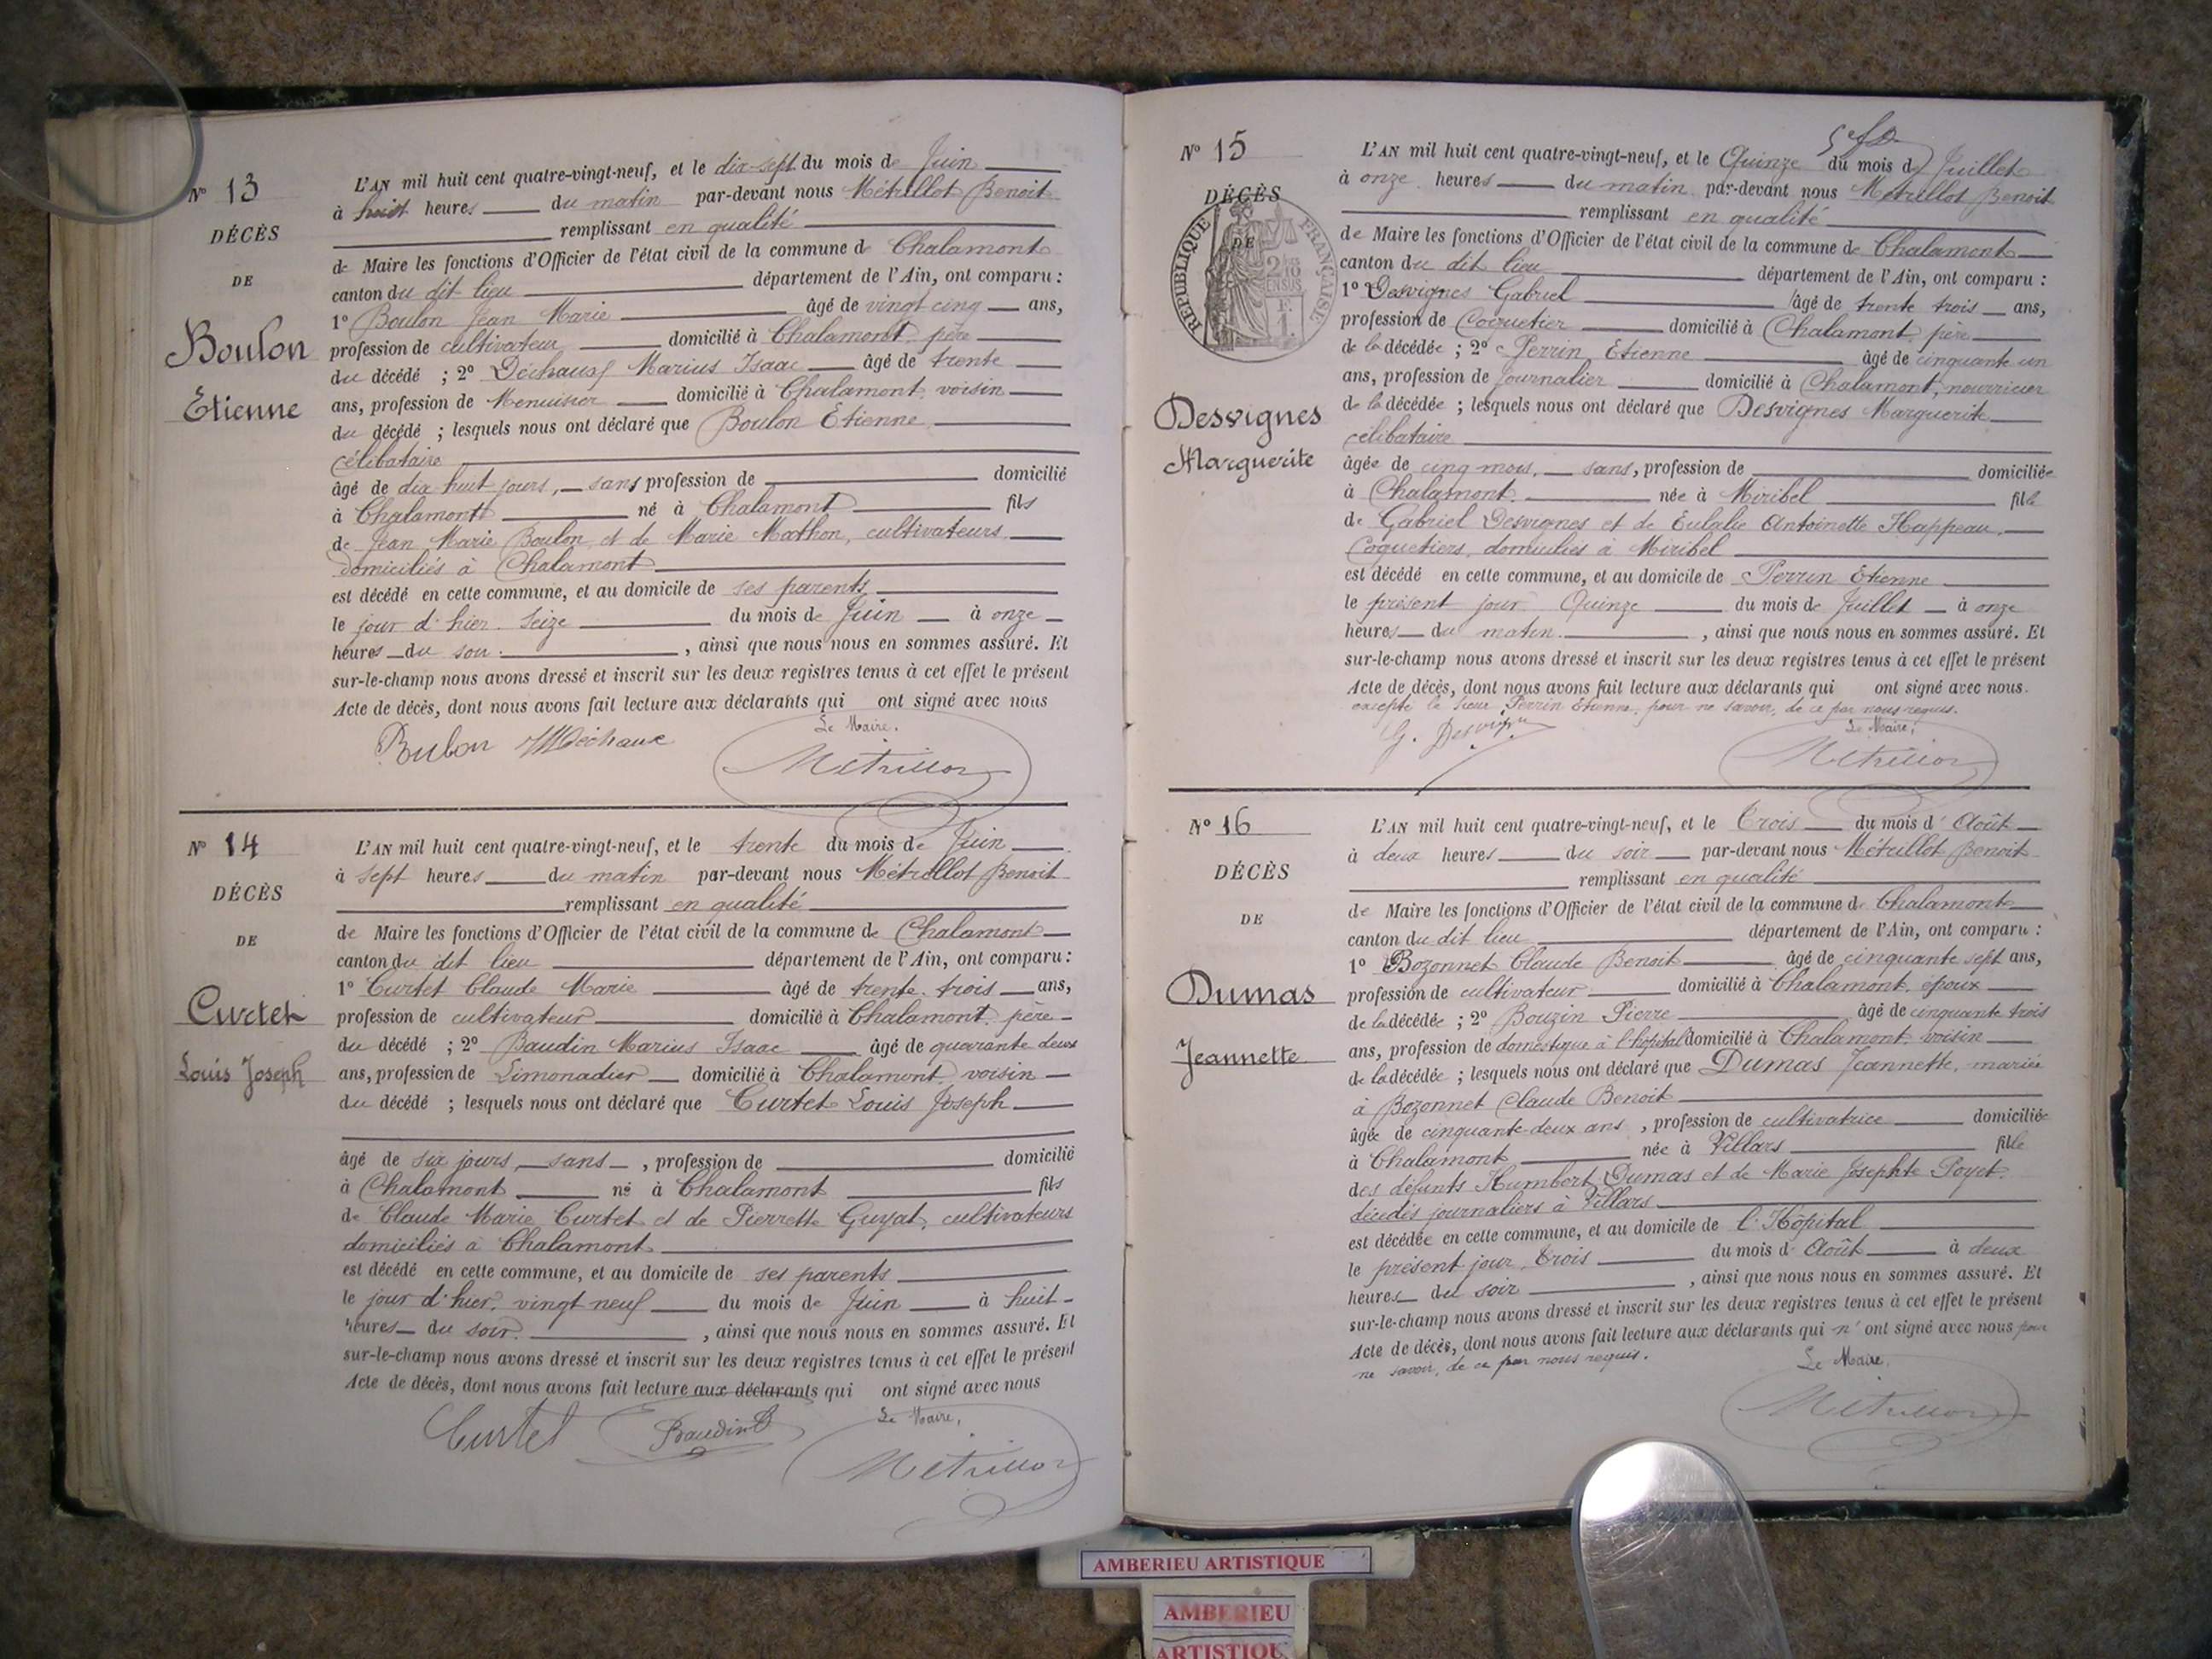 Nº 13
DÉCÈS
DE
Boulon
Etienne
L'AN mil huit cent quatre-vingt-neuf, et le dix-sept du mois de Juin
à huit heures du matin par-devant nous Métrillot Benoit
remplissant en qualité
de Maire les fonctions d'Officier de l'état civil de la commune de Chalamont
canton du dit lieu département de l'Ain, ont comparu :
1º Boulon Jean Marie âgé de vingt cinq ans,
profession de cultivateur domicilié à Chalamont, père
du décédé ; 2º Déchaux Marius Isaac âgé de trente
ans, profession de Menuisier domicilié à Chalamont, voisin
du décédé ; lesquels nous ont déclaré que Boulon Etienne
célibataire
âgé de dix huit jours, sans profession de domicilié
à Chalamont né à Chalamont fils
de Jean Marie Boulon et de Marie Mathon, cultivateurs
domiciliés à Chalamont
est décédé en cette commune, et au domicile de ses parents
le jour d'hier Seize du mois de Juin à onze
heures du soir , ainsi que nous nous en sommes assuré. Et
sur-le-champ nous avons dressé et inscrit sur les deux registres tenus à cet effet le présent
Acte de décès, dont nous avons fait lecture aux déclarants qui ont signé avec nous
Le Maire.
Boulon Déchaux
Métrillot
Nº 14
DÉCÈS
DE
Curtet
Louis Joseph
L'AN mil huit cent quatre-vingt-neuf, et le trente du mois de Juin
à sept heures du matin par-devant nous Métrillot Benoit
remplissant en qualité
de Maire les fonctions d'Officier de l'état civil de la commune de Chalamont
canton du dit lieu département de l'Ain, ont comparu :
1º Curtet Claude Marie âgé de trente trois ans,
profession de cultivateur domicilié à Chalamont, père
du décédé ; 2º Baudin Marius Isaac âgé de quarante deux
ans, profession de Limonadier domicilié à Chalamont, voisin
du décédé ; lesquels nous ont déclaré que Curtet Louis Joseph
âgé de six jours, sans , profession de domicilié
à Chalamont né à Chalamont fils
de Claude Marie Curtet et de Pierrette Guyat, cultivateurs
domiciliés à Chalamont
est décédé en cette commune, et au domicile de ses parents
le jour d'hier, vingt neuf du mois de Juin à huit
heures du soir , ainsi que nous nous en sommes assuré. Et
sur-le-champ nous avons dressé et inscrit sur les deux registres tenus à cet effet le présent
Acte de décès, dont nous avons fait lecture aux déclarants qui ont signé avec nous
Le Maire,
Curtet Baudin
Métrillot
Nº 15
DÉCÈS
DE
RÉPUBLIQUE FRANÇAISE
Desvignes
Marguerite
L'AN mil huit cent quatre-vingt-neuf, et le Quinze du mois de Juillet
à onze heures du matin par-devant nous Métrillot Benoit
remplissant en qualité
de Maire les fonctions d'Officier de l'état civil de la commune de Chalamont
canton du dit lieu département de l'Ain, ont comparu :
1º Desvignes Gabriel âgé de trente trois ans,
profession de Coquetier domicilié à Chalamont, père
de la décédée ; 2º Perrin Etienne âgé de cinquante un
ans, profession de journalier domicilié à Chalamont, nourricier
de la décédée ; lesquels nous ont déclaré que Desvignes Marguerite
célibataire
âgée de cinq mois, sans, profession de domiciliée
à Chalamont née à Miribel fille
de Gabriel Desvignes et de Eulalie Antoinette Happeau
Coquetiers, domiciliés à Miribel
est décédé en cette commune, et au domicile de Perrin Etienne
le présent jour Quinze du mois de Juillet à onze
heures du matin , ainsi que nous nous en sommes assuré. Et
sur-le-champ nous avons dressé et inscrit sur les deux registres tenus à cet effet le présent
Acte de décès, dont nous avons fait lecture aux déclarants qui ont signé avec nous.
excepté le sieur Perrin Etienne, pour ne savoir, de ce par nous requis.
Le Maire,
G. Desvignes
Métrillot
Nº 16
DÉCÈS
DE
Dumas
Jeannette
L'AN mil huit cent quatre-vingt-neuf, et le Trois du mois d'Août
à deux heures du soir par-devant nous Métrillot Benoit
remplissant en qualité
de Maire les fonctions d'Officier de l'état civil de la commune de Chalamont
canton du dit lieu département de l'Ain, ont comparu :
1º Bozonnet Claude Benoit âgé de cinquante sept ans,
profession de cultivateur domicilié à Chalamont, époux
de la décédée ; 2º Bouzin Pierre âgé de cinquante trois
ans, profession de domestique à l'hôpital domicilié à Chalamont, voisin
de la décédée ; lesquels nous ont déclaré que Dumas Jeannette, mariée
à Bozonnet Claude Benoit
âgée de cinquante-deux ans , profession de cultivatrice domiciliée
à Chalamont née à Villars fille
des défunts Humbert Dumas et de Marie Josephte Poyet
décédés journaliers à Villars
est décédée en cette commune, et au domicile de l'Hôpital
le présent jour, trois du mois d'Août à deux
heures du soir , ainsi que nous nous en sommes assuré. Et
sur-le-champ nous avons dressé et inscrit sur les deux registres tenus à cet effet le présent
Acte de décès, dont nous avons fait lecture aux déclarants qui n'ont signé avec nous pour
ne savoir, de ce par nous requis.
Le Maire.
Métrillot
AMBERIEU ARTISTIQUE
AMBERIEU
ARTISTIQUE